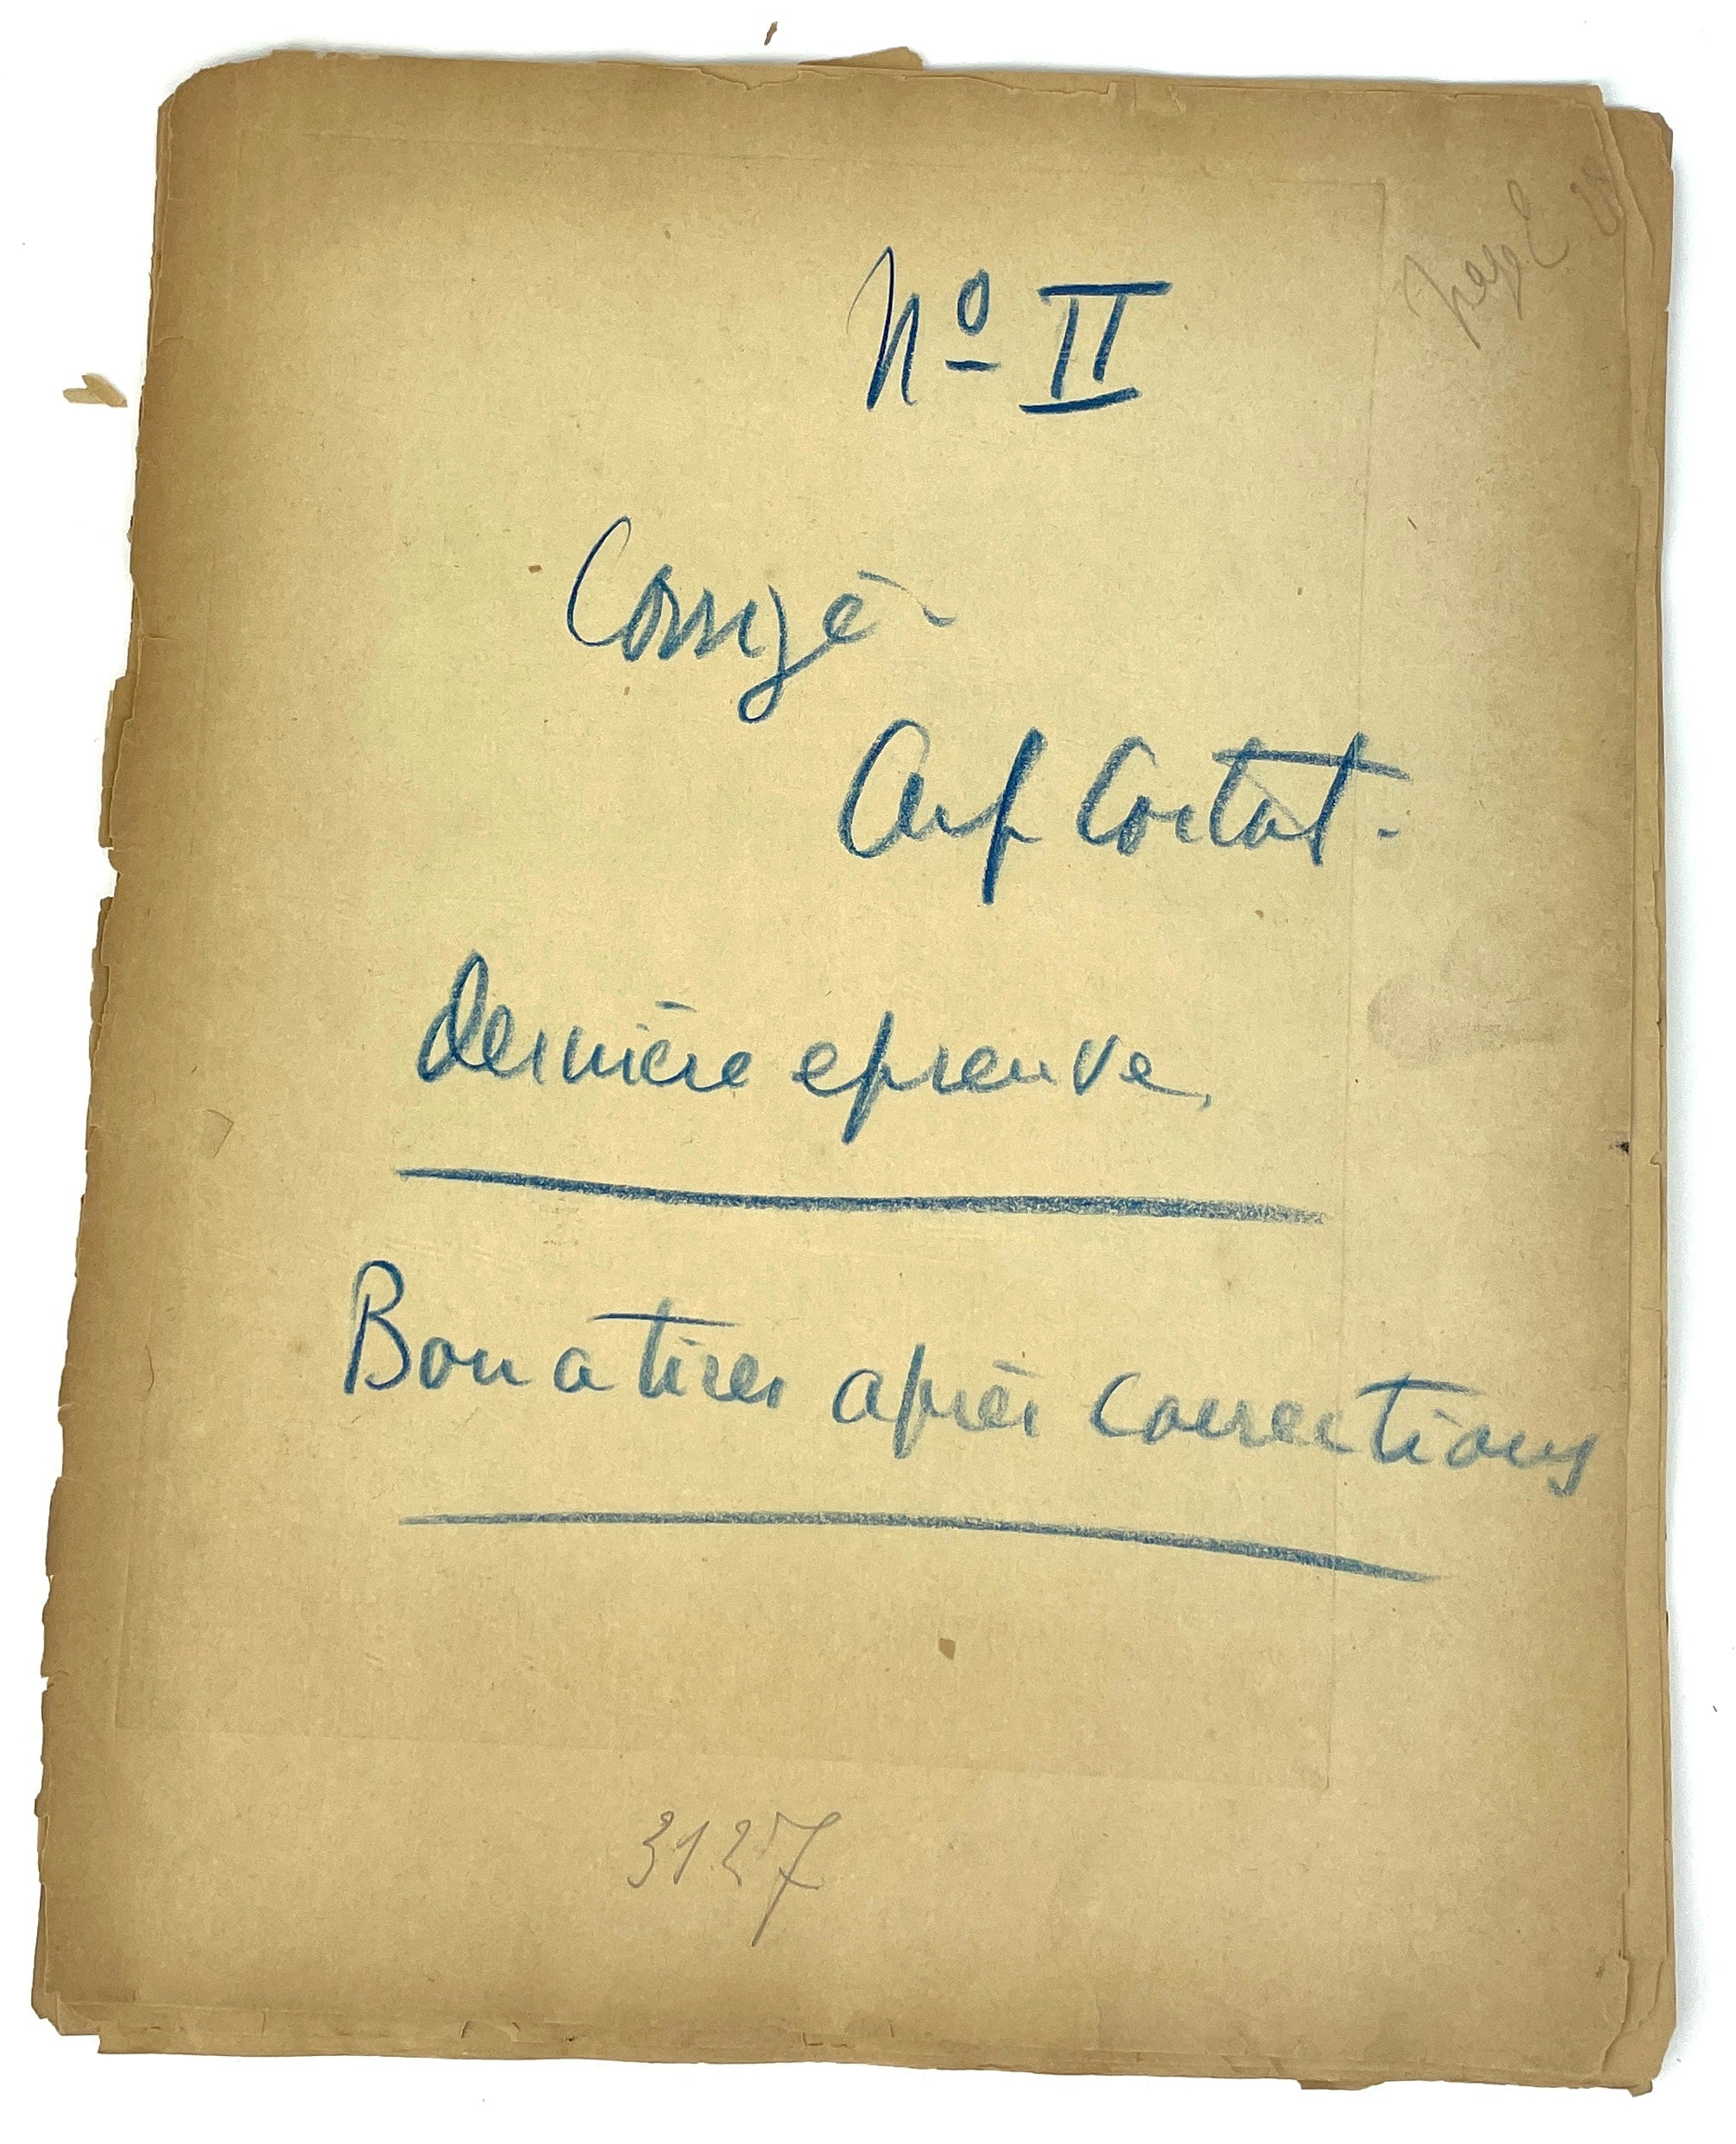 No II
Corrigé -
Alf Cortot.
dernière epreuve,
Bon a tirer après corrections
3127